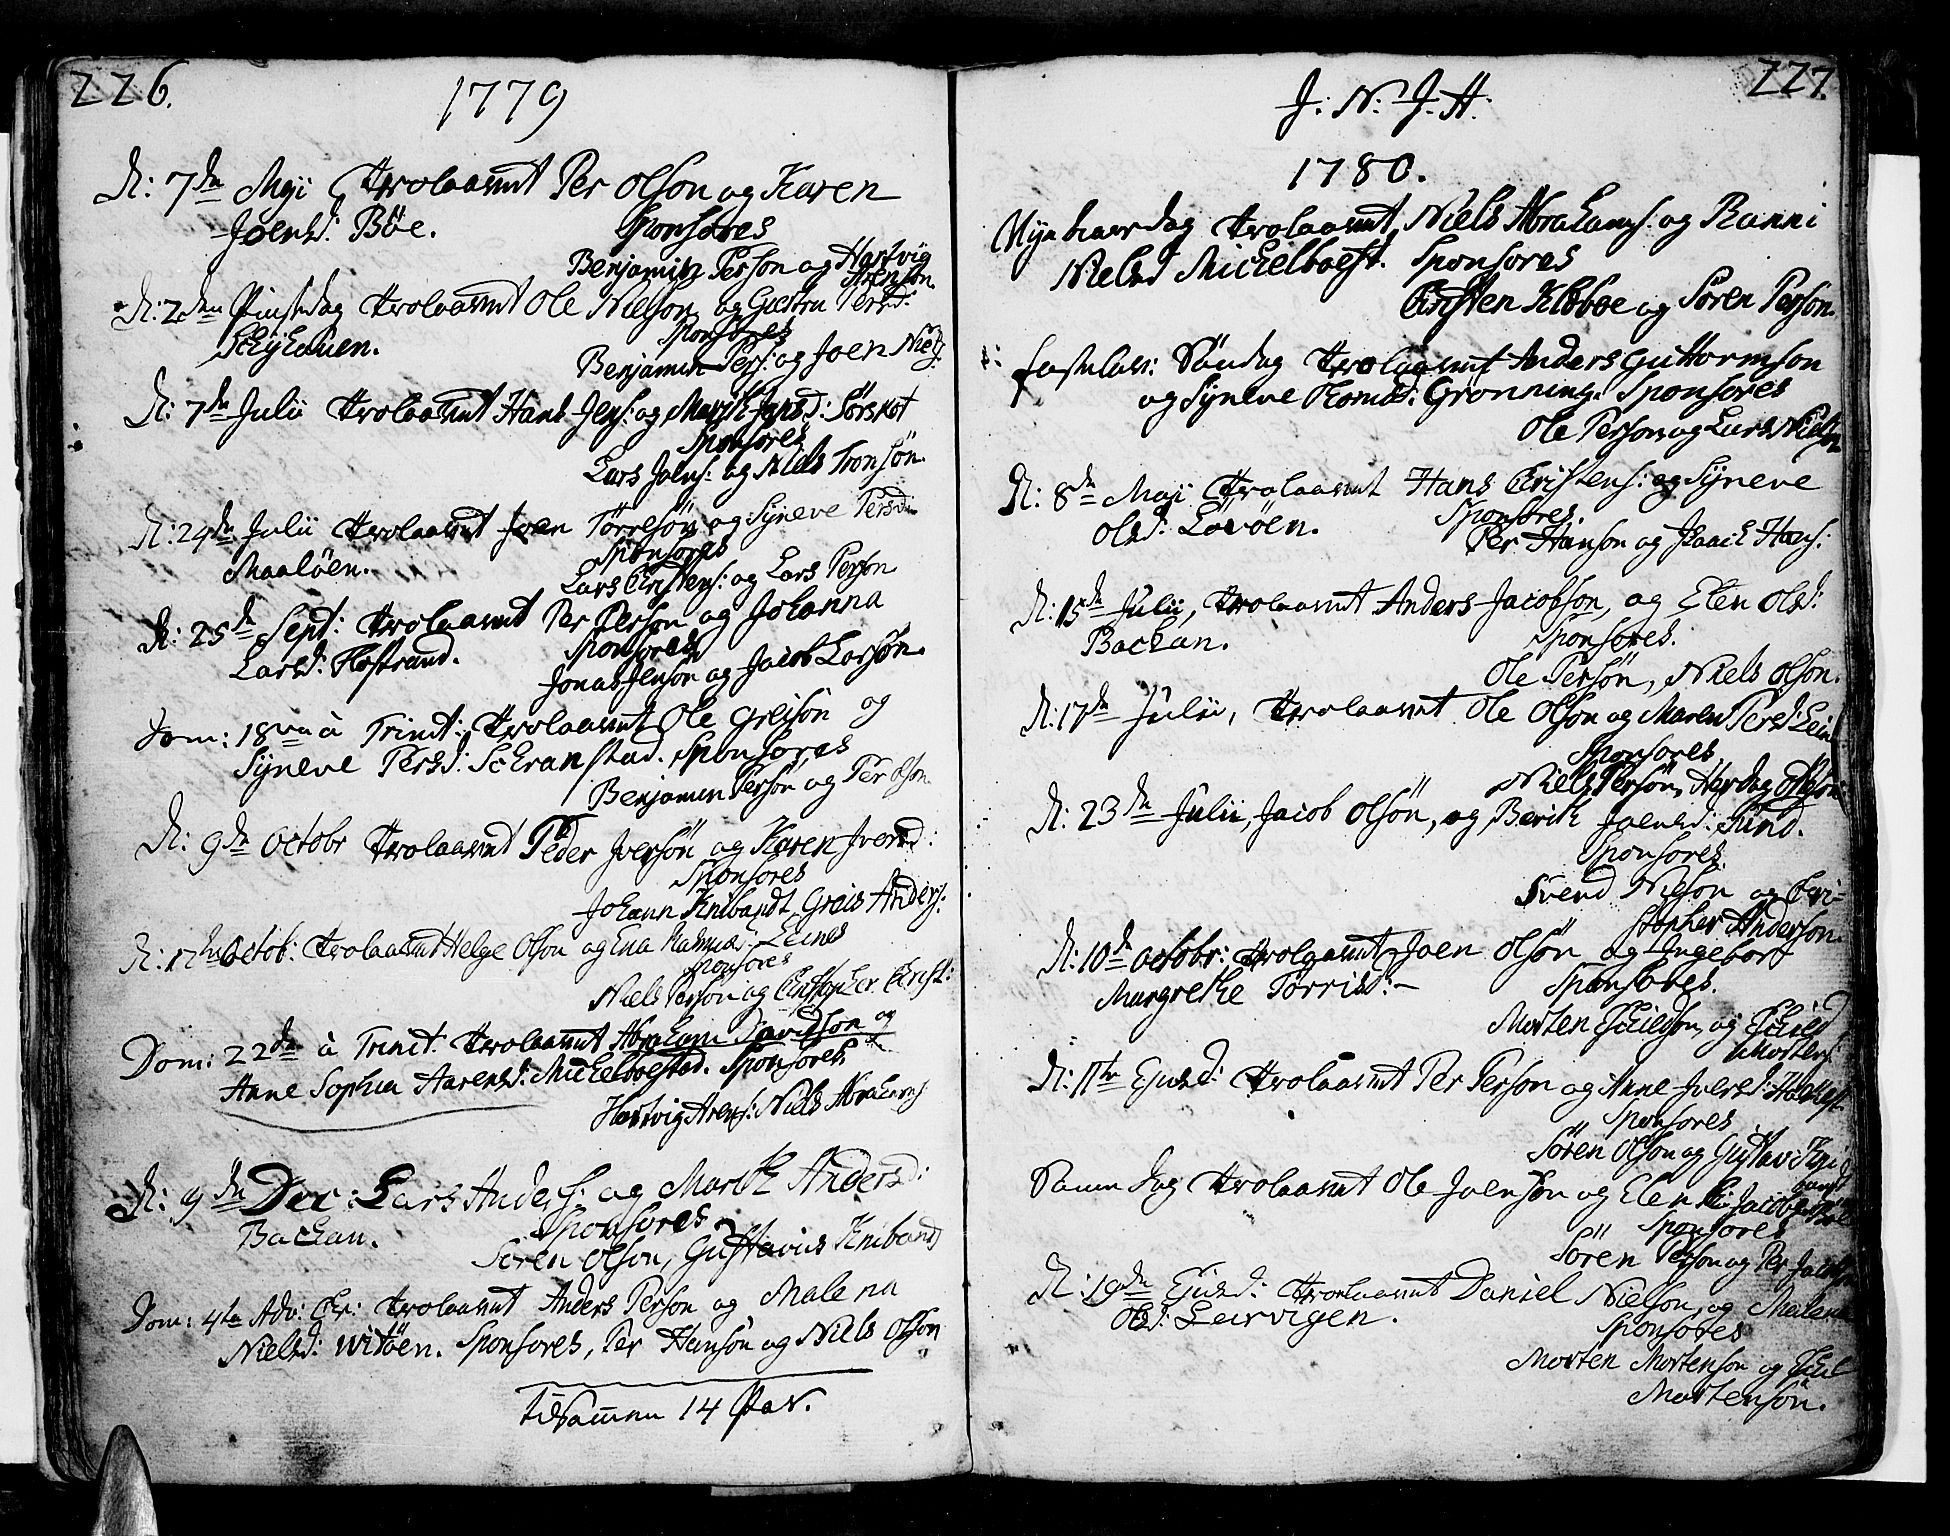 226.
1779
D: 7de Maji Trolaawet Per Olson og Karen
Joensd: Böe. Sponsores
Benjamin Person og Hartvig
Arenson.
D: 2den Pintsdag Trolaawet Ole Nielson og Giertru Persd:
Sponsores
Benjamin Pers: og Joen Niels:
D: 7de Julii Trolaawet Hans Jens: og Marith Jansd: Sörskot
Sponsores
Lars Joens: og Niels Tronsön.
D: 24de Julii Trolaawet Joen Törresön og Syneve Persd:
Maalöen. Sponsores
Lars Cristens: og Lars Person
D: 25de Sept: Trolaawet Per Person og Johanna
Larsd: Hofstrand. Sponsores
Jonas Jenson og Jacob Larsön.
Dom: 18va à Trinit: Trolaawet Ole Greisön og
Syneve Persd: Schranstad. Sponsores
Benjamin Persön og Per Olson
D: 9de Octobr Trolaawet Peder Iversön og Karen Iversd:
Sponsores
Johann Knibandt, Greis Anders:
D: 17de Octob: Trolaawet Helge Olson og Eva Rasmusd: Leines
Sponsores
Niels Person og Cristopher Crist:
Dom: 22da à Trinit. Trolaawet Abraham Davidson og
Anne Sophia Aarensd: Mickelboestad. Sponsores
Hartvig Arens: Niels Abrahams
D: 9de Dec: Lars Anders: og Marith Andersd:
Backan. Sponsores
Sören Olson, Gustavius Knibandt
Dom: 4ta Adv: Chr: Trolaawet Anders Person og Malena
Nielsd: Witöen. Sponsores, Per Hansön og Niels Olson
tilsammen 14 Par.
227.
J: N: J: H:
1780.
Nyaarsdag Trolaawet Niels Abrahams: og Ranni
Nielsd Mickelboest. Sponsores
Cristen Klobboe og Sören Person.
Fastelav: Söndag Trolaawet Anders Guttormson
og Syneve Tomasd: Grönning. Sponsores
Ole Person og Lars Nielson
D: 8de Maji Trolaawet Hans Cristens: og Syneve
Olsd: Lövöen. Sponsores.
Per Hanson og Isaach Hans:
D: 15de Julii, Trolaawet Anders Jacobson, og Elen Olsd:
Backan. Sponsores.
Ole Persön, Niels Olson.
D: 17de Julii, Trolaawet Ole Olson og Maren Persd: Lein
Sponsores
Niels Persön,
D: 23de Julii, Jacob Olsön, og Berith Joensd: Fund.
Sponsores.
Svend Nielson og Cri-
stopher Anderson.
D: 10de Octobr: Trolaawet Joen Olsön og Ingebor
Margrethe Törrisd: - Sponsores.
Morten Eskildson, og Eskild
Mortens:
D: 11te Ejusd: Trolaawet Per Person og Anne Iversd:
Sponsores
Sören Olson og Gustav Kni
bandt
Samme Dag Trolaawet Ole Joenson og Elen Jacobsd
Sponsores
Sören Person og Per Jacobson
D: 19de Ejusd: Trolaawet Daniel Nielson, og Malena
Olsd: Leirvigen. Sponsores
Morten Mortenson og Eskil
Mortensön.